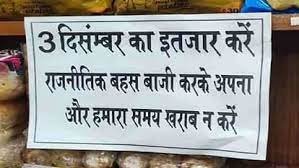 3 दिसंम्बर का इतजार करें
राजनीतिक बहस बाजी करके अपना
और हमारा समय खराब न करें